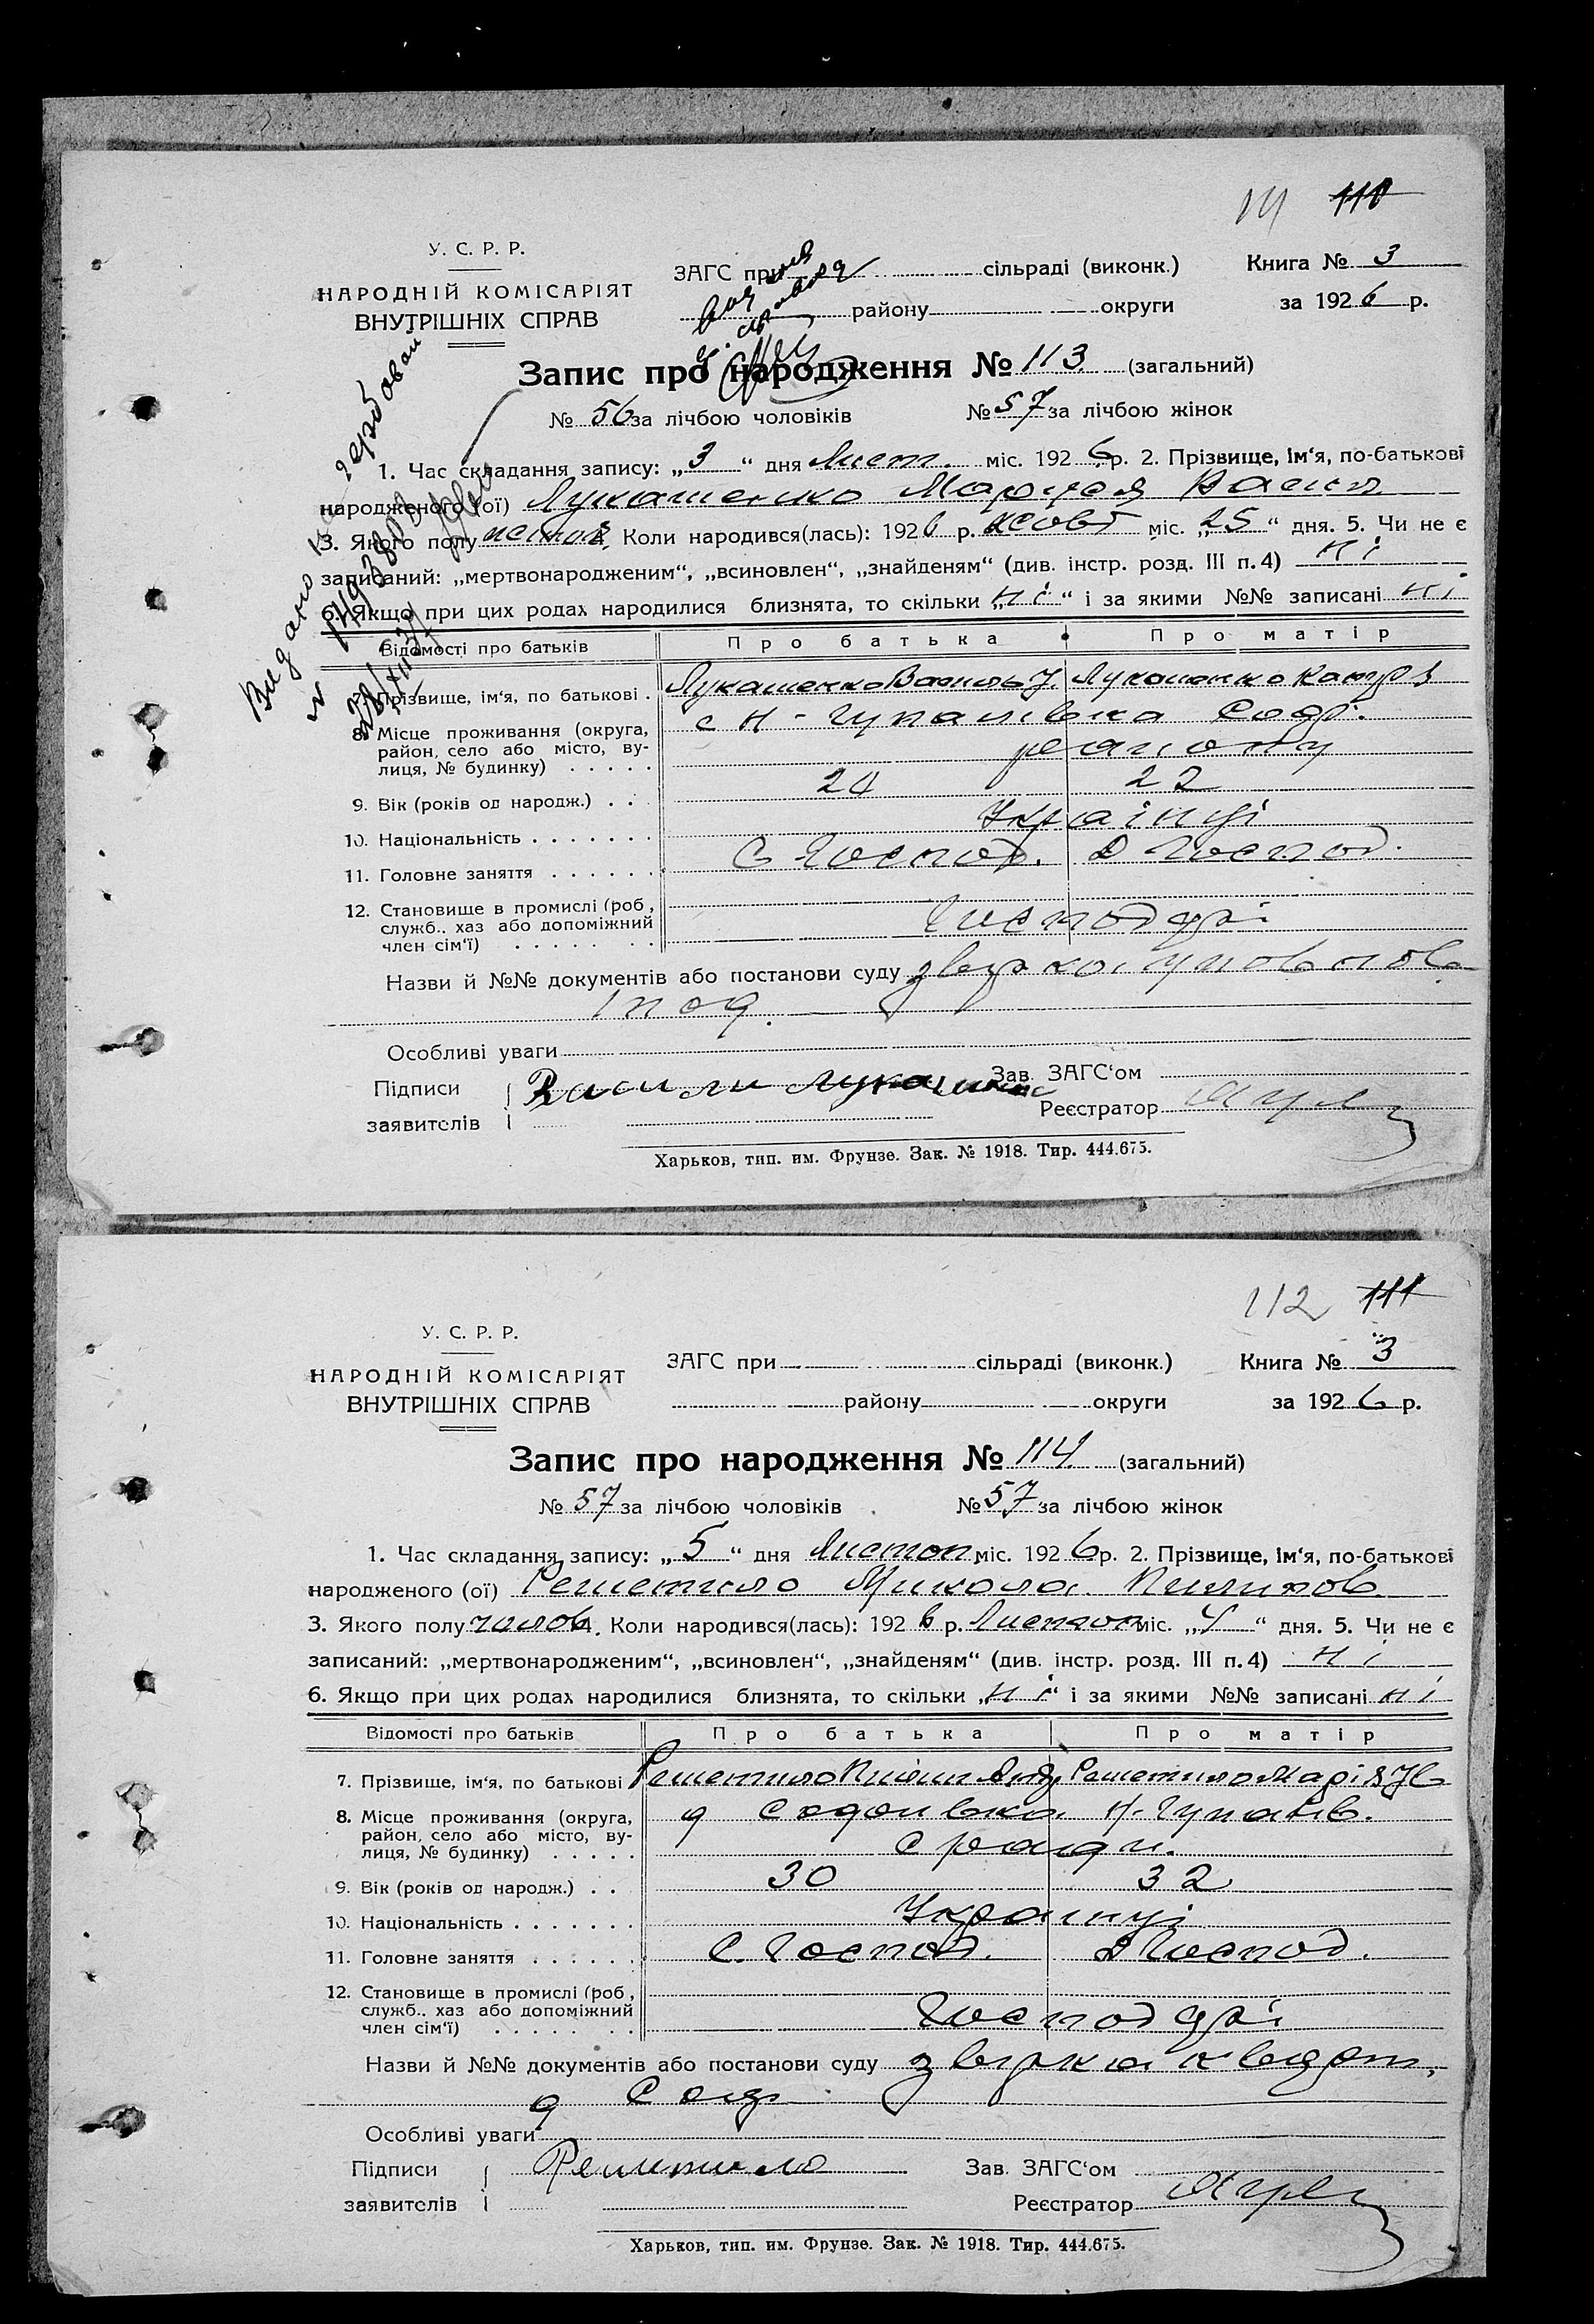 111 110
У. С. Р. Р.
НАРОДНІЙ КОМІСАРІЯТ
ВНУТРІШНІХ СПРАВ
ЗАГС при сільраді (виконк.)
району округи
Книга № 3
за 1926 р.
Запис про народження № 113 (загальний)
№ 56 за лічбою чоловіків № 57 за лічбою жінок
1. Час складання запису: „3“ дня Лист. міс. 1926 р. 2. Прізвище, ім‘я, по-батькові
народженого (ої) Лукашенко Маруся Васил
3. Якого полу 4. Коли народився(лась): 1926 р. жовт міс. „25“ дня. 5. Чи не є
записаний: „мертвонародженим“, „всиновлен“, „знайденям“ (див. інстр. розд. III п. 4) ні
6. Якщо при цих родах народилися близнята, то скільки „ні“ і за якими №№ записані ні
Відомості про батьків Про батька Про матір
7. Прізвище, ім‘я, по батькові . Лукашенко Василь Лукашенко
8. Місце проживання (округа, с Н-Гупалівка
район, село або місто, ву-
лиця, № будинку) . . . . . району
9. Вік (років од народж.) . . 24 22
10. Національність . . . . . . . Українці
11. Головне заняття . . . . . . С. Господ. Д Господ.
12. Становище в промислі (роб.,
служб.. хаз або допоміжний
член сім‘ї) . . . . . . . . Господарі
Назви й №№ документів або постанови суду
Особливі уваги
Підписи Василь Лукашенко Зав. ЗАГС‘ом
заявителів Реєстратор
Харьков, тип. им. Фрунзе. Зак. № 1918. Тир. 444.675.
Видано
гербовой
112 111
У. С. Р. Р.
НАРОДНІЙ КОМІСАРІЯТ
ВНУТРІШНІХ СПРАВ
ЗАГС при сільраді (виконк.)
району округи
Книга № 3
за 1926 р.
Запис про народження № 114 (загальний)
№ 57 за лічбою чоловіків № 57 за лічбою жінок
1. Час складання запису: „5“ дня Листоп міс. 1926 р. 2. Прізвище, ім‘я, по-батькові
народженого (ої) Решетило Микола Пилипов
3. Якого полу чолов 4. Коли народився(лась): 1926 р. Листоп міс. „4“ дня. 5. Чи не є
записаний: „мертвонародженим“, „всиновлен“, „знайденям“ (див. інстр. розд. III п. 4) ні
6. Якщо при цих родах народилися близнята, то скільки „ні“ і за якими №№ записані ні
Відомості про батьків Про батька Про матір
7. Прізвище, ім‘я, по батькові Решетило Пилип Решетило Марія
8. Місце проживання (округа, Н-Гупалів.
район, село або місто, ву-
лиця, № будинку) . . . . .
9. Вік (років од народж.) . . 30 32
10. Національність . . . . . . . Українці
11. Головне заняття . . . . . . С. Господ. Д Господ.
12. Становище в промислі (роб.,
служб.. хаз або допоміжний
член сім‘ї) . . . . . . . . Господарі
Назви й №№ документів або постанови суду
Особливі уваги
Підписи Решетило Зав. ЗАГС‘ом
заявителів Реєстратор
Харьков, тип. им. Фрунзе. Зак. № 1918. Тир. 444.675.